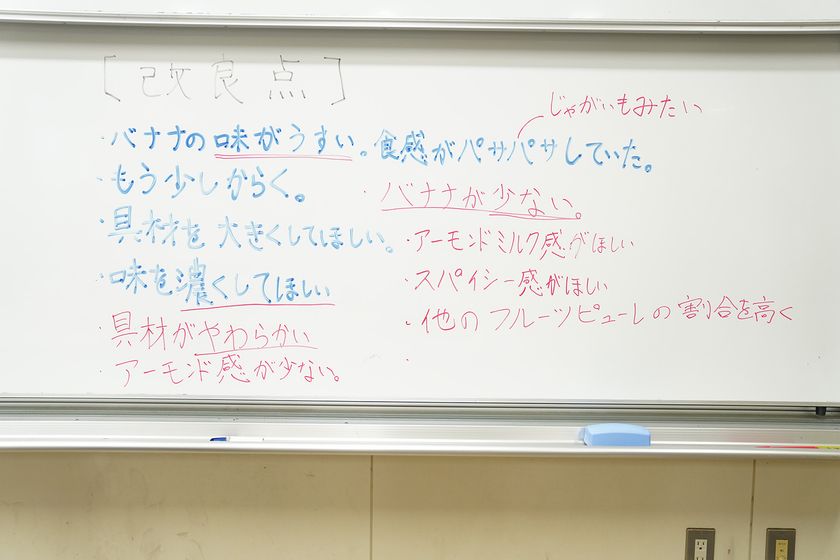 [改良点]
・バナナの味がうすい。食感がパサパサしていた。
じゃがいもみたい
・もう少しからく。
・具材を大きくしてほしい。
・味を濃くしてほしい
・具材がやわらかい
・アーモンド感が少ない。
・バナナが少ない。
・アーモンドミルク感がほしい
・スパイシー感がほしい
・他のフルーツピューレの割合を高く
・